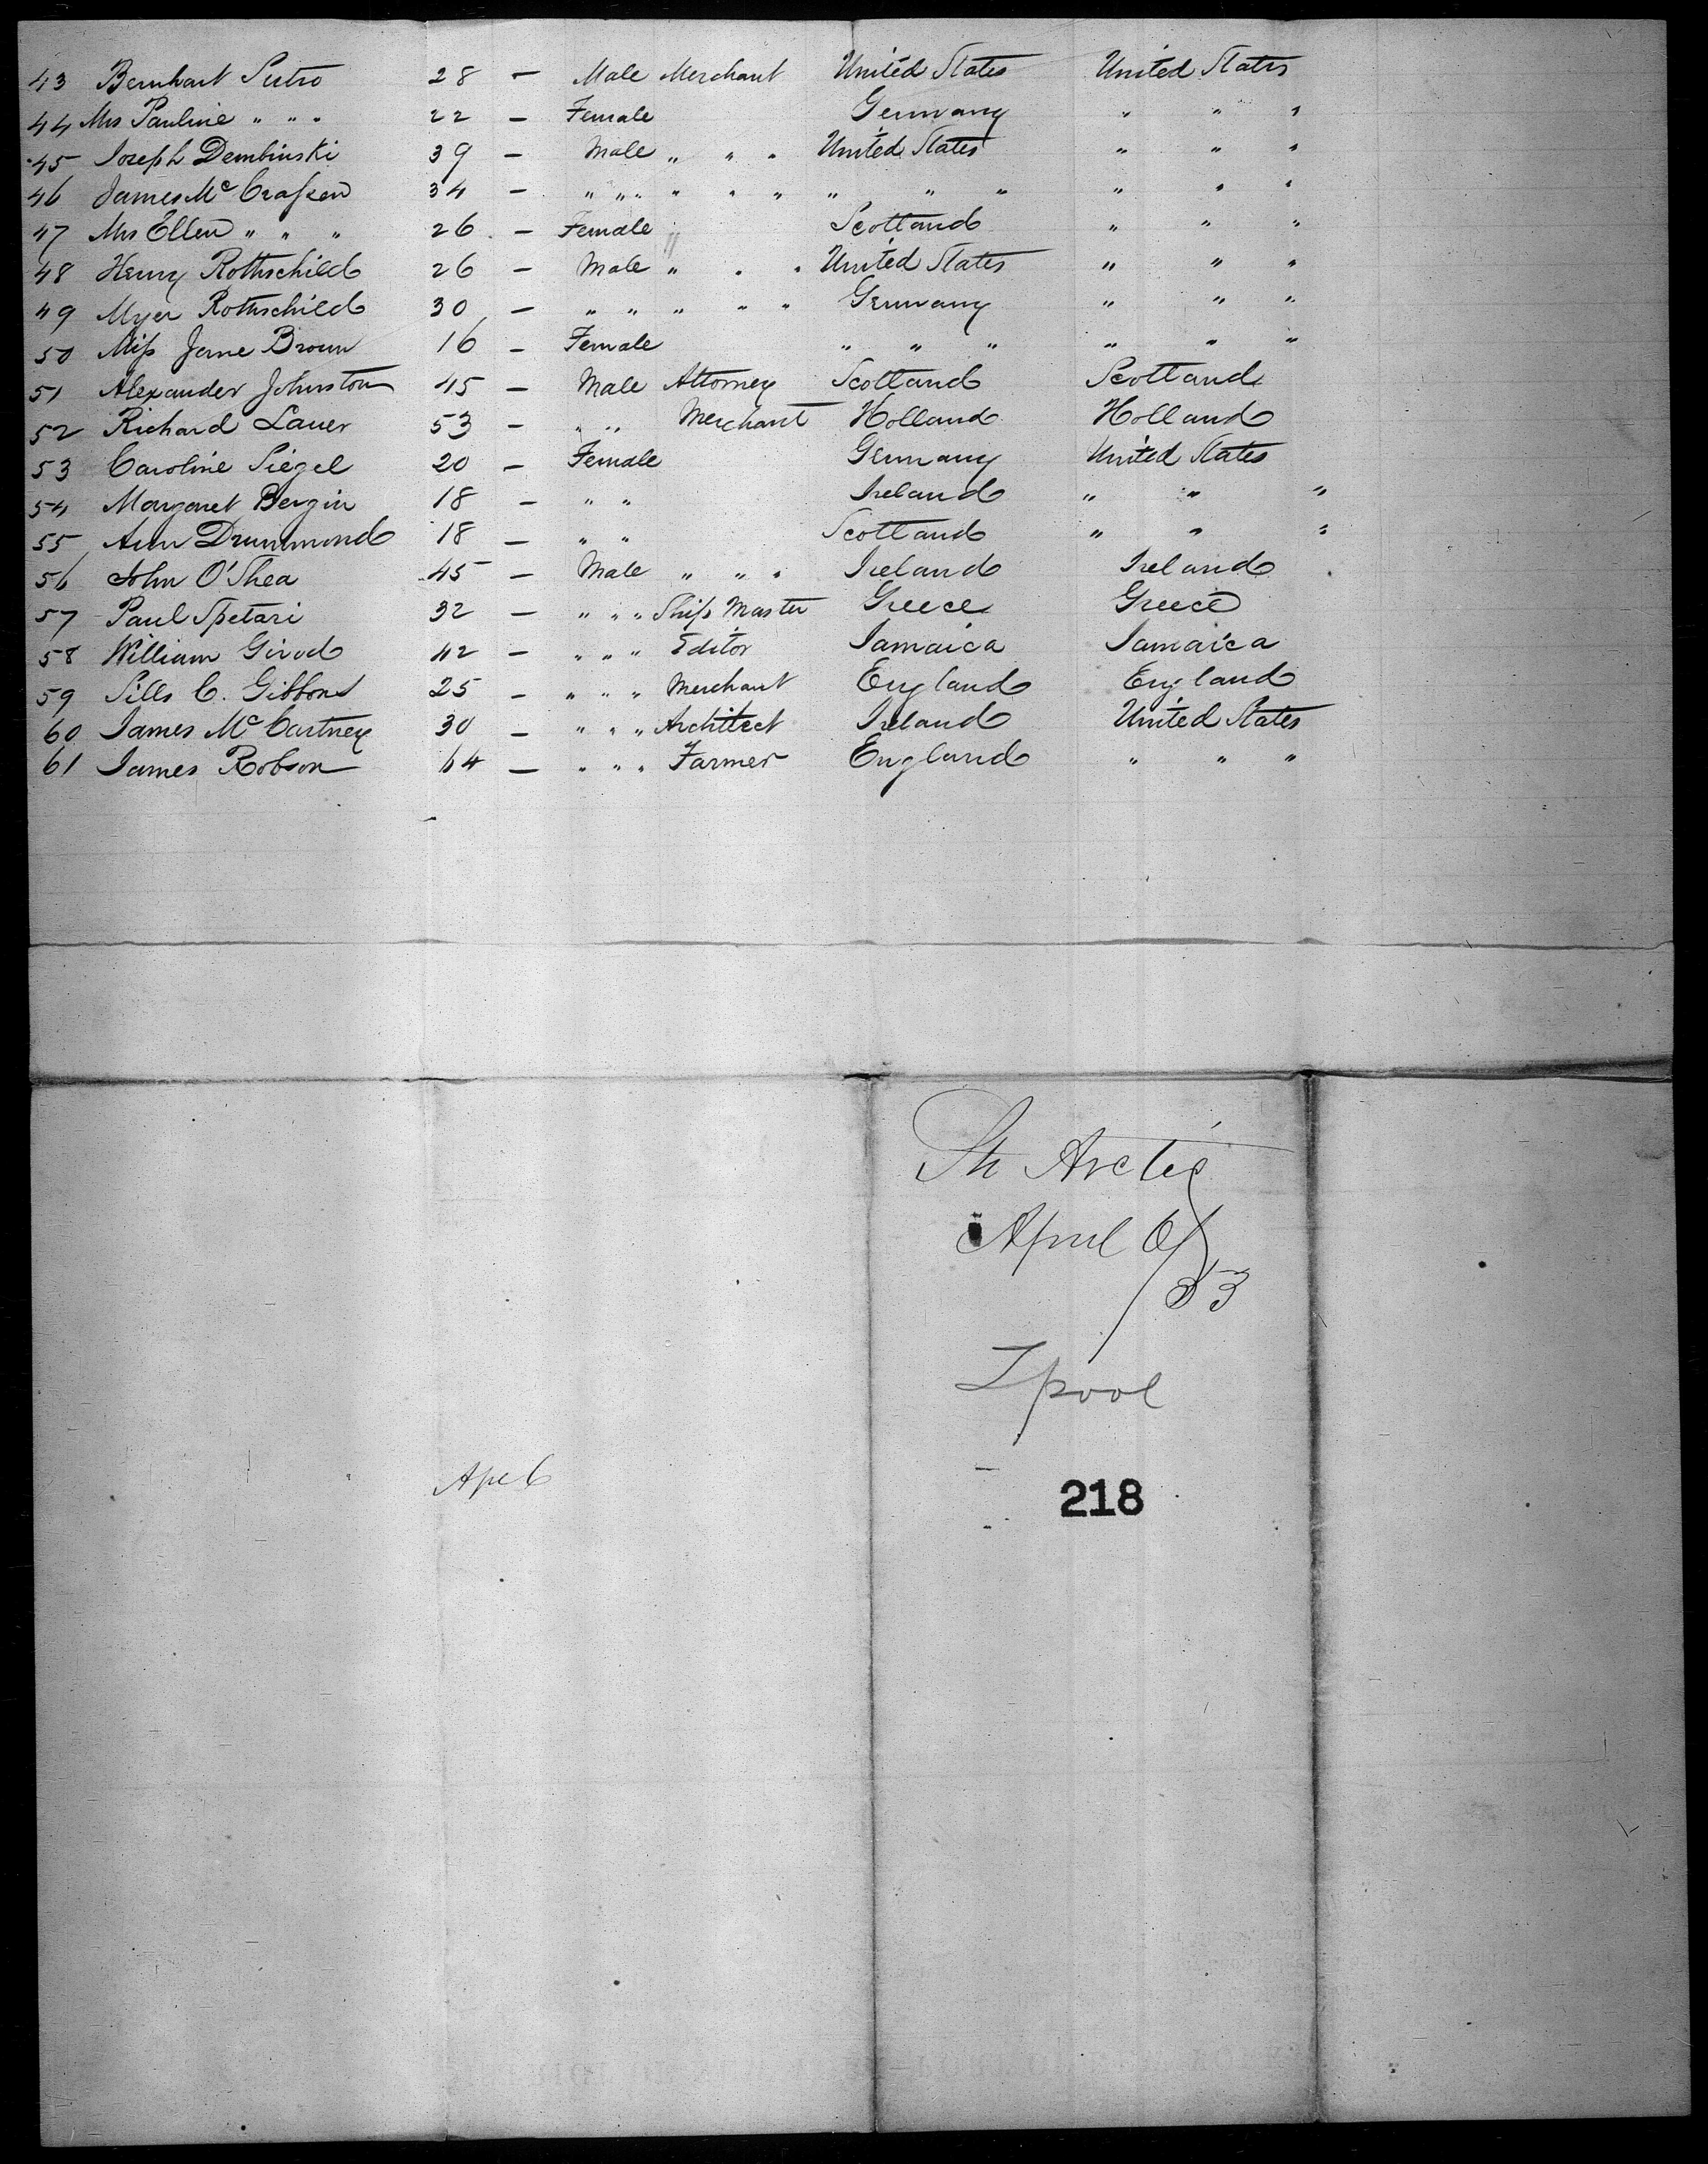 43 Bernhart Sutro 28 — Male Merchant United States United States
44 Mrs Pauline " " " 22 — Female Germany " " "
45 Joseph Dembinski 39 — Male " " " United States " " "
46 James Mc Crafken 34 — " " " " " " " " " " " "
47 Mrs Ellen " " " 26 — Female Scotland " " "
48 Henry Rothschild 26 — Male " " " United States " " "
49 Myer Rothschild 30 — " " " " " Germany " " "
50 Miss Jane Brown 16 — Female " " " " " "
51 Alexander Johnston 45 — Male Attorney Scotland Scotland
52 Richard Lauer 53 — " " Merchant Holland Holland
53 Caroline Siegel 20 — Female Germany United States
54 Margaret Bergin 18 — " " Ireland " " "
55 Ann Drummond 18 — " " Scotland " " "
56 John O'Shea 45 — Male " " " Ireland Ireland
57 Paul Spetari 32 — " " " Ship Master Greece Greece
58 William Girod 42 — " " " Editor Jamaica Jamaica
59 Sills C. Gibbons 25 — " " " Merchant England England
60 James Mc Cartney 30 — " " " Architect Ireland United States
61 James Robson 64 — " " " Farmer England " " "
St Arctic
April 6/
53
Lpool
Apl 6
218